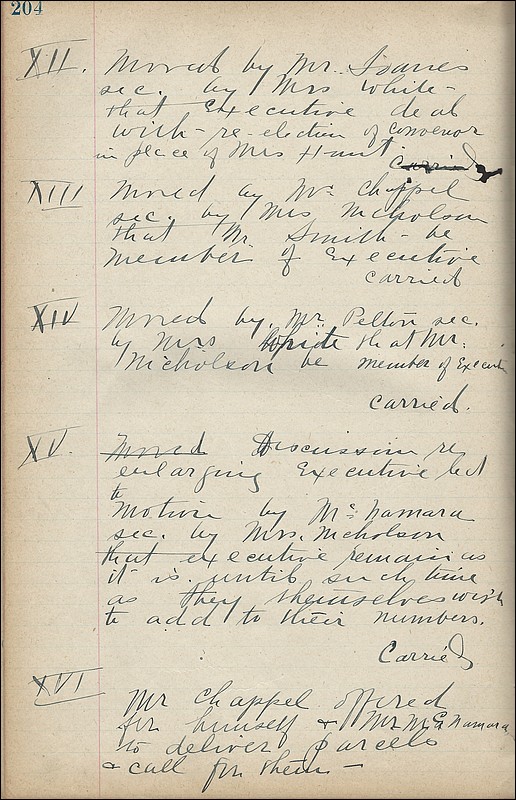 204
XII. Moved by Mr.
sec. by Mrs White -
that Executive deal
with - re-election of convenor
in place of Mrs Hunt Carried
XIII Moved by Mr Chappel
sec. by Mrs Nicholson
that Mr Smith - be
member of Executive
carried
XIV Moved by Mr. Pelton sec.
by Mrs White that Mr.
Nicholson be member of Executi
carried.
XV. Moved Discussion re
enlarging Executive led
to
Motion by Mc Namara
sec. by Mrs. Nicholson
that executive remain as
it is until such time
as they themselves wish
to add to their numbers.
Carried
XVI Mr Chappel offered
for himself & Mr McNamara
to deliver parcels
& call for them -